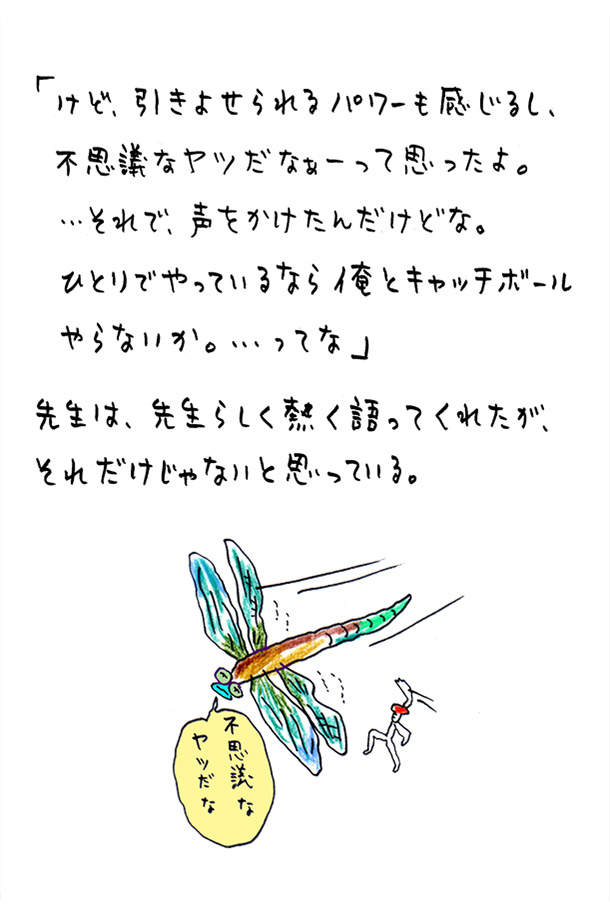 「けど、引きよせられるパワーも感じるし、
不思議なヤツだなぁーって思ったよ。
…それで、声をかけたんだけどな。
ひとりでやっているなら俺とキャッチボール
やらないか。…ってな」
先生は、先生らしく熱く語ってくれたが、
それだけじゃないと思っている。
不思議な
ヤツだな